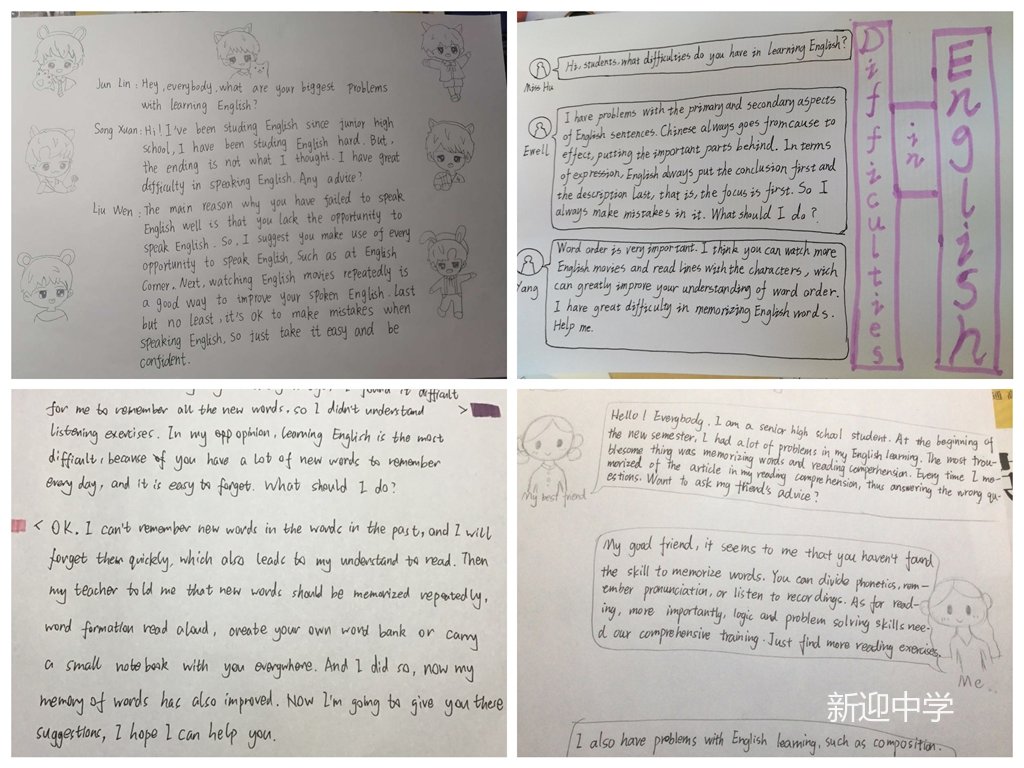 Jun Lin : Hey, everybody, what are your biggest problems
with learning English?
Song Xuan: Hi! I've been studing English since junior high
school, I have been studing English hard. But,
the ending is not what I thought. I have great
difficulty in speaking English. Any advice?
Liu Wen: The main reason why you have failed to speak
English well is that you lack the opportunity to
speak English. So, I suggest you make use of every
opportunity to speak English, Such as at English
Corner. Next, watching English movies repeatedly is
a good way to improve your spoken English. Last
but no least, it's ok to make mistakes when
speaking English, so just take it easy and be
confident.
Hi, students, what difficulties do you have in learning English?
Miss Hu
I have problems with the primary and secondary aspects
of English sentences. Chinese always goes from cause to
effect, putting the important parts behind. In terms
of expression, English always put the conclusion first and
the description last, that is, the focus is first. So I
always make mistakes in it. What should I do?
Ewell
Word order is very important. I think you can watch more
English movies and read lines with the characters, wich
can greatly improve your understanding of word order.
I have great difficulty in memorizing English words.
Help me.
Yang
Difficulties
in
English
I found it difficult
for me to remember all the new words. so I didn't understand
listening exercises. In my opp opinion, learning English is the most
difficult, because of you have a lot of new words to remember
every day, and it is easy to forget. What should I do?
< OK. I can't remember new words in the words in the past, and I will
forget them quickly, which also leads to my understand to read. Then
my teacher told me that new words should be memorized repeatedly,
word formation read aloud, create your own word bank or carry
a small notebook with you everywhere. And I did so, now my
memory of words has also improved. Now I'm going to give you these
suggestions, I hope I can help you.
Hello! Everybody. I am a senior high school student. At the beginning of
the new semester, I had a lot of problems in my English learning. The most trou-
blesome thing was memorizing words and reading comperhension. Every time I me-
morized of the article in my reading comprehension, thus answering the wrong qu-
estions. Want to ask my friend's advice?
My best friend
My good friend, it seems to me that you haven't found
the skill to memorize words. You can divide phonetics, rem-
ember pronunciation, or listen to recordings. As for read-
ing, more importantly, logic and problem solving skills nee-
d our comprehensive training. Just find more reading exercises.
Me..
新迎中学
I also have problems with English learning, such as composition.